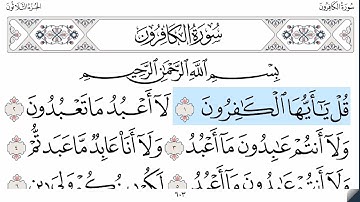 سُورَةُ الكَافِرُونَ الجُزْءُ الثَّلَاثُونَ
سُورَةُ الكَافِرُونَ
بِسْمِ ٱللَّهِ ٱلرَّحْمَٰنِ ٱلرَّحِيمِ
قُلْ يَٰٓأَيُّهَا ٱلْكَٰفِرُونَ ١ لَآ أَعْبُدُ مَا تَعْبُدُونَ ٢
وَلَآ أَنتُمْ عَٰبِدُونَ مَآ أَعْبُدُ ٣ وَلَآ أَنَا۠ عَابِدٌ مَّا عَبَدتُّمْ ٤
وَلَآ أَنتُمْ عَٰبِدُونَ مَآ أَعْبُدُ ٥ لَكُمْ دِينُكُمْ وَلِىَ دِينِ
٦٠٣